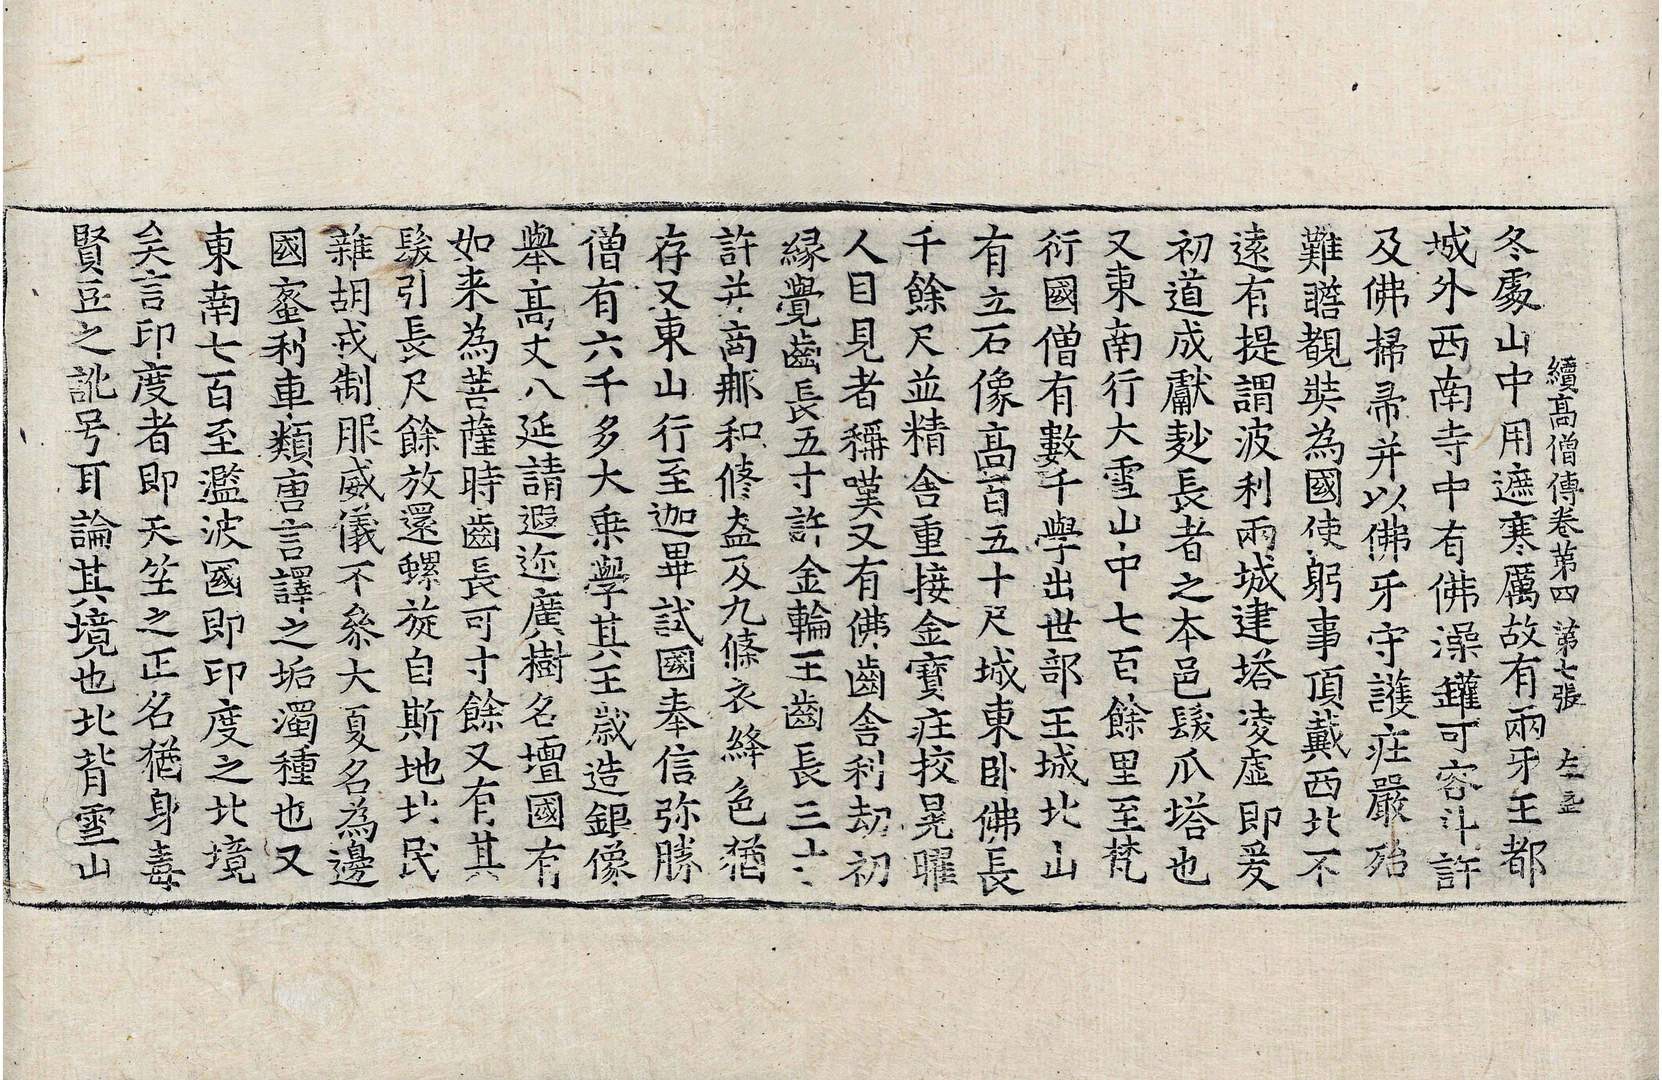 續高僧傳卷第四 第七張 左
冬處山中用遮寒厲故有兩牙王都
城外西南寺中有佛澡鑵可容斗許
及佛掃帚并以佛牙守護莊嚴殆
難瞻覩奘為國使躬事頂戴西北不
遠有提謂波利兩城建塔凌虛即爰
初道成獻麨長者之本邑髮爪塔也
又東南行大雪山中七百餘里至梵
衍國僧有數千學出世部王城北山
有立石像高百五十尺城東卧佛長
千餘尺並精舍重接金寶莊挍晃曜
人目見者稱嘆又有佛齒舍利劫初
緣覺齒長五寸許金輪王齒長三寸
許并商那和修盋及九條衣絳色猶
存又東山行至迦畢試國奉信弥勝
僧有六千多大乘學其王歲造銀像
舉高丈八延請遐迩廣樹名壇國有
如来為菩薩時齒長可寸餘又有其
髮引長尺餘放還螺旋自斯地北民
雜胡戎制服威儀不叅大夏名為邊
國蜜利車類唐言譯之垢濁種也又
東南七百至濫波國即印度之北境
矣言印度者即天竺之正名猶身毒
賢豆之訛号耳論其境也北背雪山